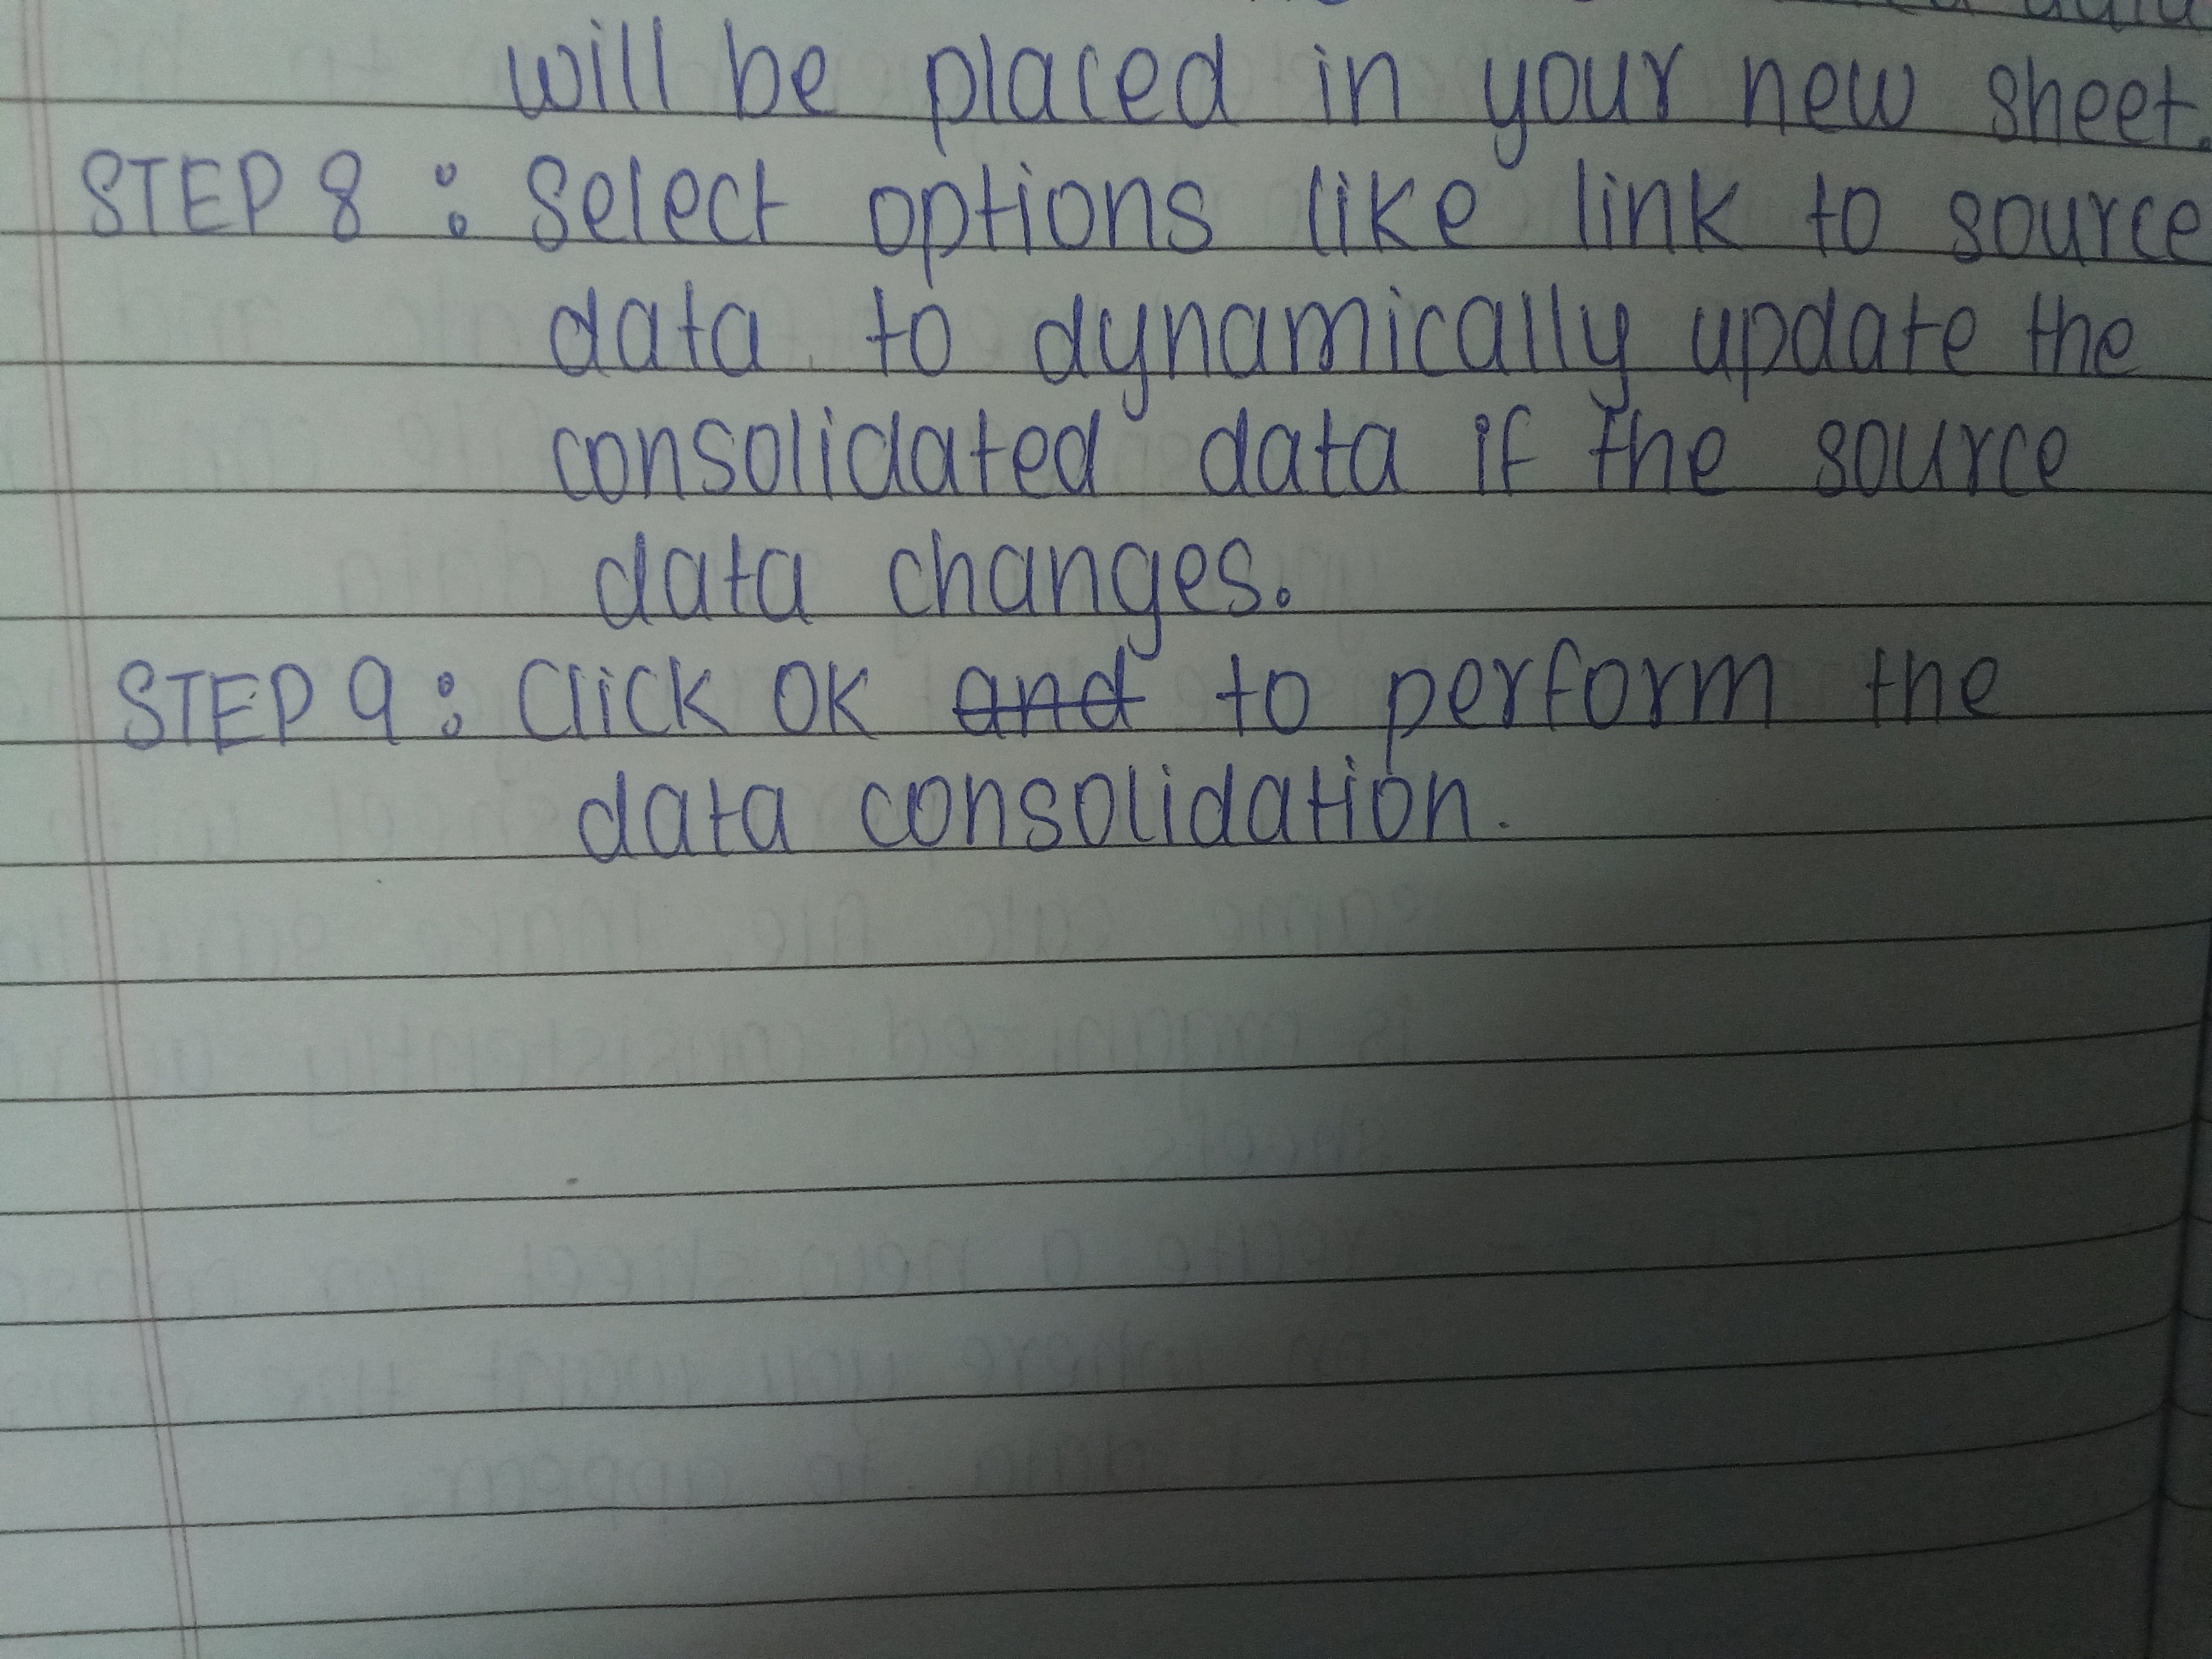 data
will be placed in your new sheet.
STEP 8 : Select options like link to source
data to dynamically update the
consolidated data if the source
data changes.
STEP 9 : Click OK and to perform the
data consolidation.